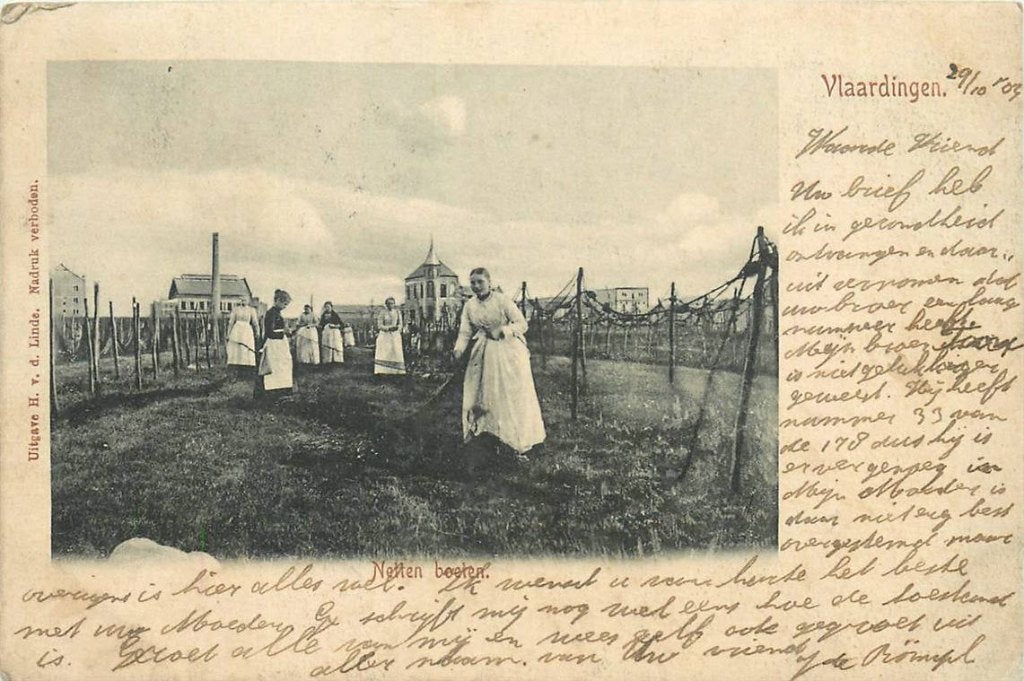 Vlaardingen. 29/10 '03
Waarde Vriend
Uw brief heb
ik in gezondheid
ontvangen en daar„
uit vernomen dat
uw broer een laag
nummer heeft
Mijn broer
is niet gelukkiger
geweest. Hij heeft
nummer 33 van
de 178 dus hij is
er ver genoeg in
Mijn Moeder is
daar niet erg best
overgestemd maar
overigens is hier alles wel. Ik wensch u van harte het beste
met uw Moeder. Ge schrijft mij nog wel eens hoe de toestand
is. Groet alle van mij en wees zelf ook gegroet uit
aller naam. van Uw vriend J de Römpl
Netten boeten.
Uitgave H. v. d. Linde. Nadruk verboden.